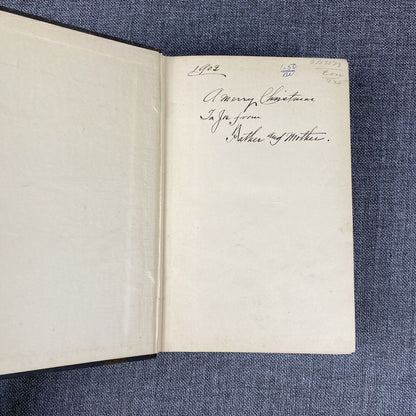 1902
1.50
A merry Christmas
To Joe from
Father and Mother.